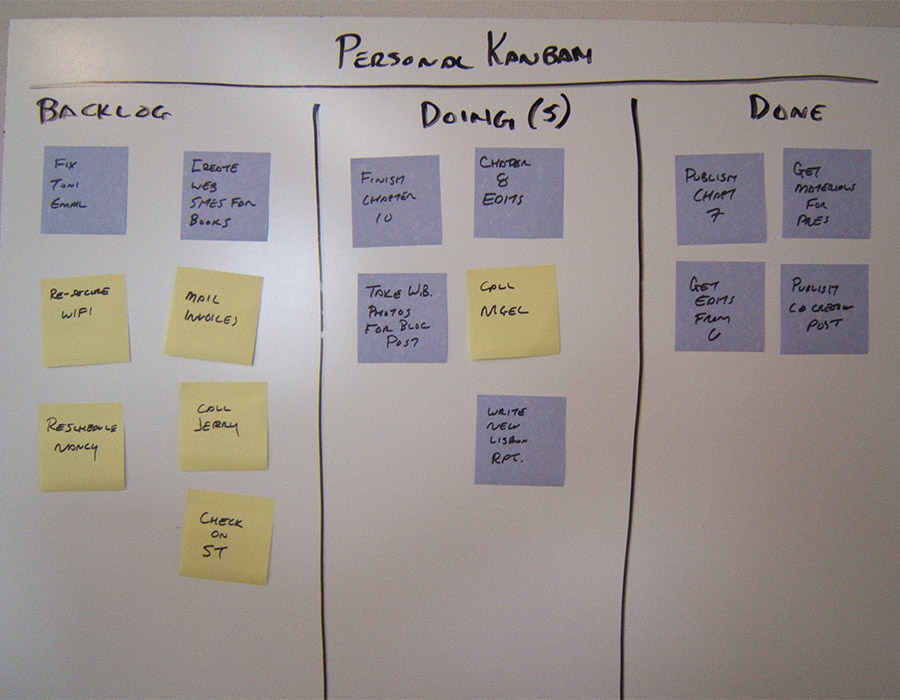 PERSONAL KANBAN
BACKLOG
FIX
TONI
EMAIL
CREATE
WEB
SITES FOR
BOOKS
RE-SECURE
WIFI
MAIL
INVOICES
RESCHEDULE
NANCY
CALL
JERRY
CHECK
ON
ST
DOING (5)
FINISH
CHAPTER
10
CHAPTER
8
EDITS
TAKE W.B.
PHOTOS
FOR BLOG
POST
CALL
NIGEL
WRITE
NEW
LISBON
RPT.
DONE
PUBLISH
CHAPT
7
GET
MATERIALS
FOR
PRES
GET
EDITS
FROM
PUBLISH
CO CREATION
POST